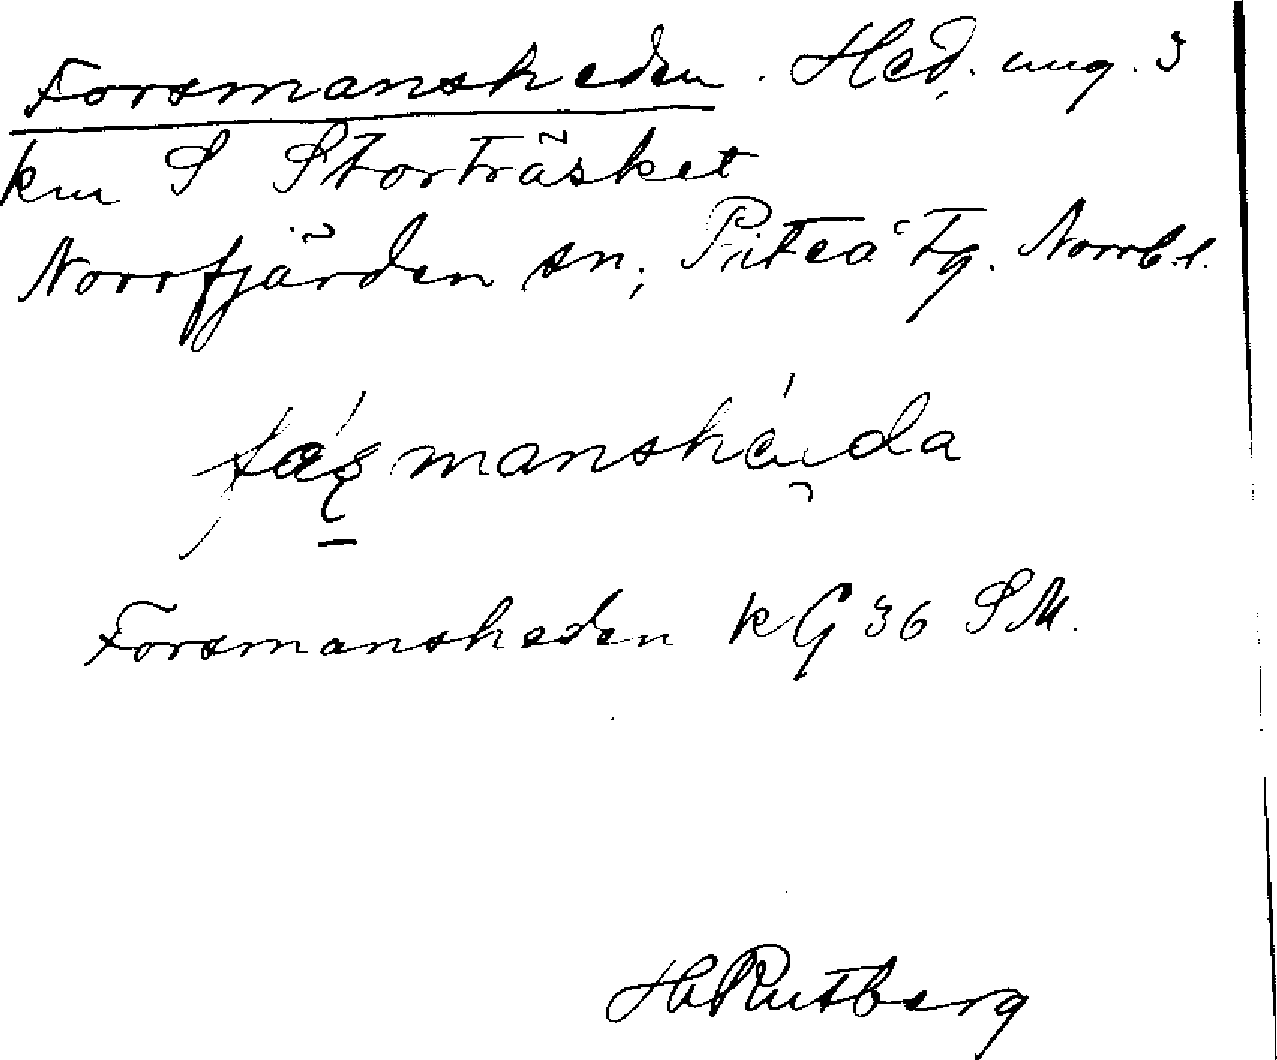 Forsmansheden. Hed, ung. 3
km S Storträsket
Norrfjärden sn, Piteå tg. Norrb.l.
Forsmansheden kG 36 SM.
H Rutberg